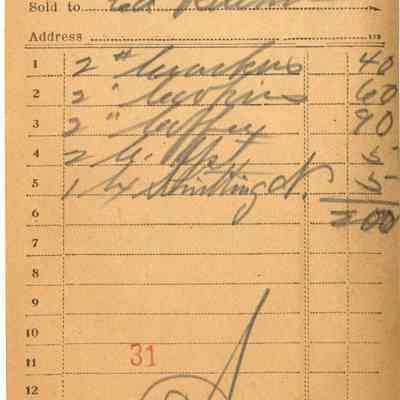 Sold to Ed
Address
1 2 # Crackers 40
2 2 " Cookies 60
3 2 " Coffey 90
4 2 5
5 1 5
6 200
7
8
9
10
11 31
12